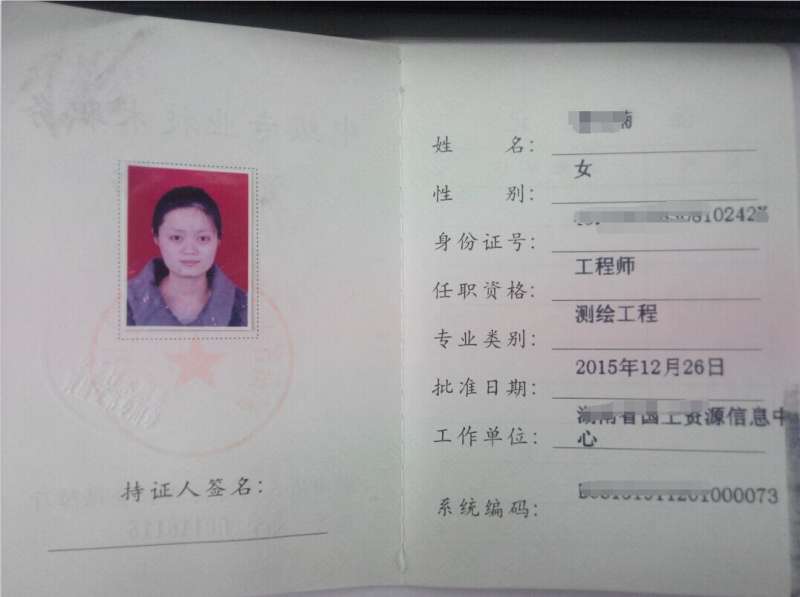 持证人签名:
姓 名:
性 别: 女
身份证号: 810242
任职资格: 工程师
专业类别: 测绘工程
批准日期: 2015年12月26日
工作单位: 资源信息中
心
系统编码: 01000073